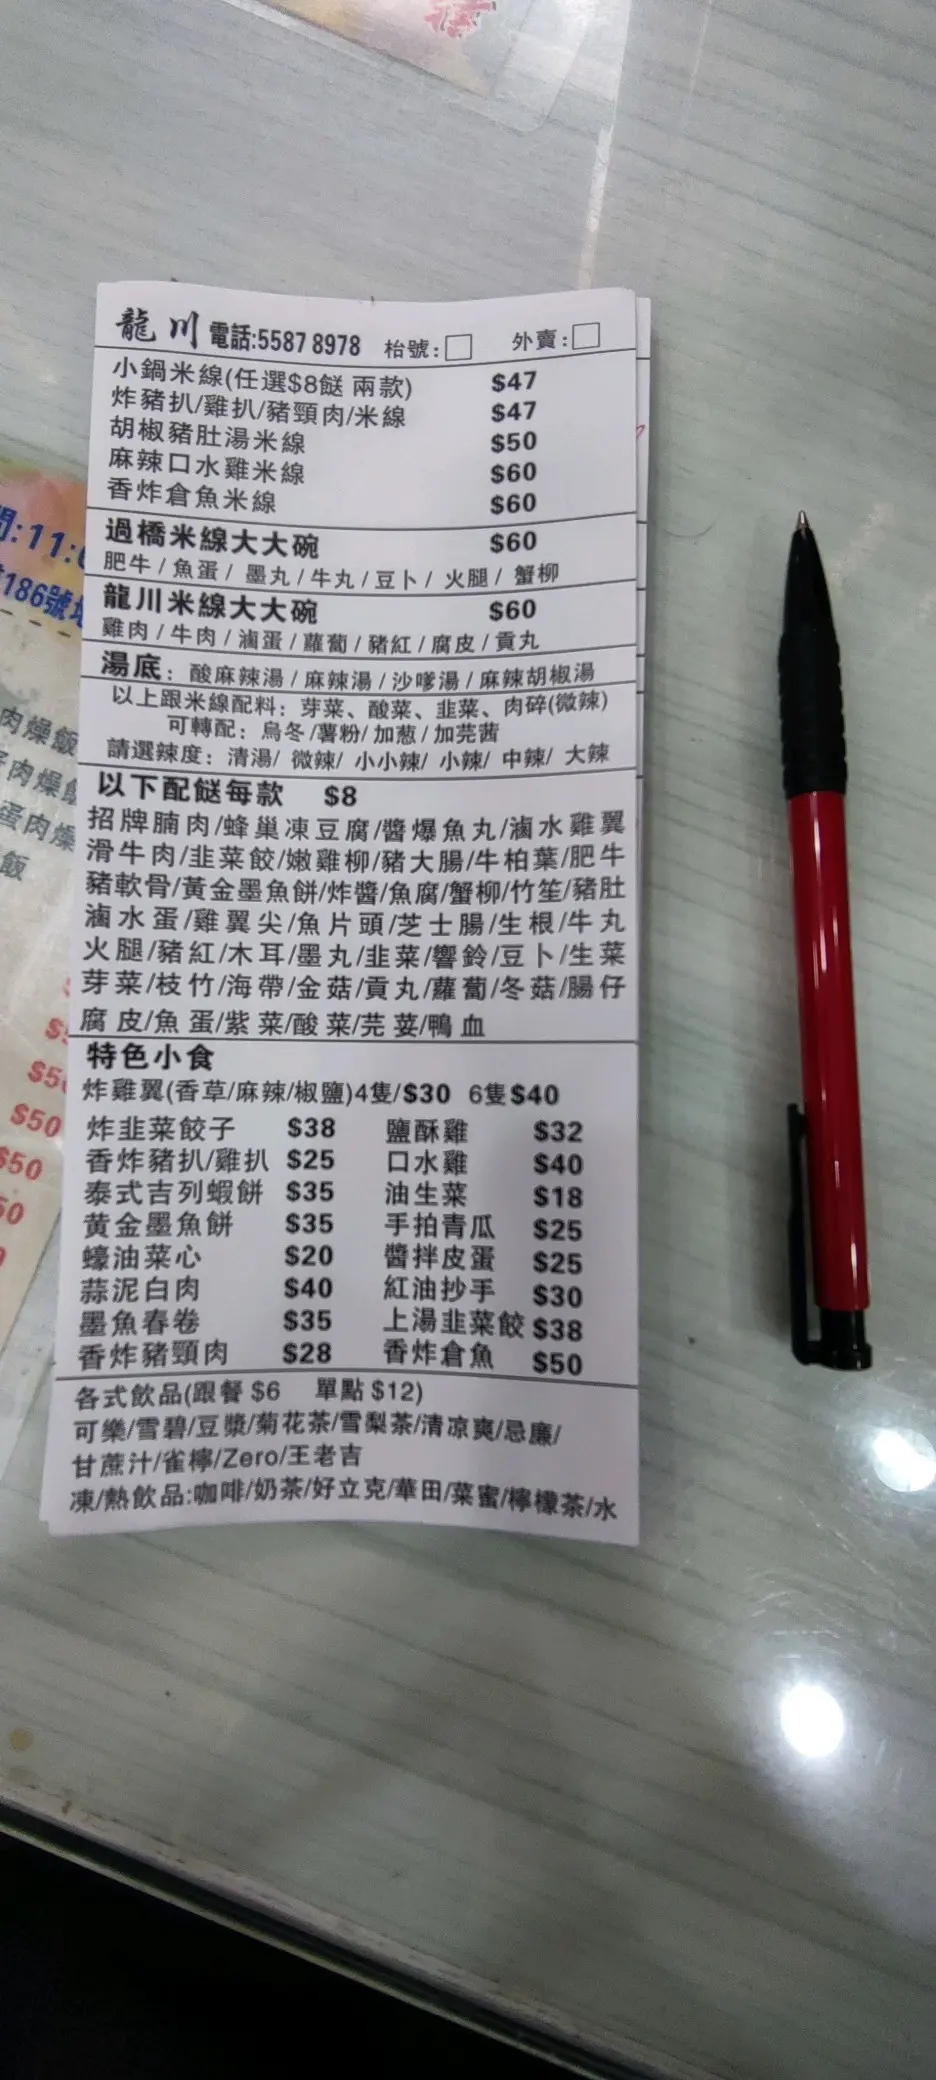 龍川 電話:5587 8978 枱號:□ 外賣:□
小鍋米線(任選$8餸 兩款) $47
炸豬扒/雞扒/豬頸肉/米線 $47
胡椒豬肚湯米線 $50
麻辣口水雞米線 $60
香炸倉魚米線 $60
過橋米線大大碗 $60
肥牛/魚蛋/墨丸/牛丸/豆卜/火腿/蟹柳
龍川米線大大碗 $60
雞肉/牛肉/滷蛋/蘿蔔/豬紅/腐皮/貢丸
湯底：酸麻辣湯/麻辣湯/沙嗲湯/麻辣胡椒湯
以上跟米線配料：芽菜、酸菜、韭菜、肉碎(微辣)
可轉配：烏冬/薯粉/加葱/加芫茜
請選辣度：清湯/微辣/小小辣/小辣/中辣/大辣
以下配餸每款 $8
招牌腩肉/蜂巢凍豆腐/醬爆魚丸/滷水雞翼
滑牛肉/韭菜餃/嫩雞柳/豬大腸/牛柏葉/肥牛
豬軟骨/黃金墨魚餅/炸醬/魚腐/蟹柳/竹笙/豬肚
滷水蛋/雞翼尖/魚片頭/芝士腸/生根/牛丸
火腿/豬紅/木耳/墨丸/韭菜/響鈴/豆卜/生菜
芽菜/枝竹/海帶/金菇/貢丸/蘿蔔/冬菇/腸仔
腐皮/魚蛋/紫菜/酸菜/芫荽/鴨血
特色小食
炸雞翼(香草/麻辣/椒鹽)4隻/$30 6隻$40
炸韭菜餃子 $38 鹽酥雞 $32
香炸豬扒/雞扒 $25 口水雞 $40
泰式吉列蝦餅 $35 油生菜 $18
黃金墨魚餅 $35 手拍青瓜 $25
蠔油菜心 $20 醬拌皮蛋 $25
蒜泥白肉 $40 紅油抄手 $30
墨魚春卷 $35 上湯韭菜餃 $38
香炸豬頸肉 $28 香炸倉魚 $50
各式飲品(跟餐$6 單點$12)
可樂/雪碧/豆漿/菊花茶/雪梨茶/清凉爽/忌廉/
甘蔗汁/雀檸/Zero/王老吉
凍/熱飲品:咖啡/奶茶/好立克/華田/菜蜜/檸檬茶/水
:11:
186號
肉燥飯
肉燥飯
蛋肉燥
飯
$50
$50